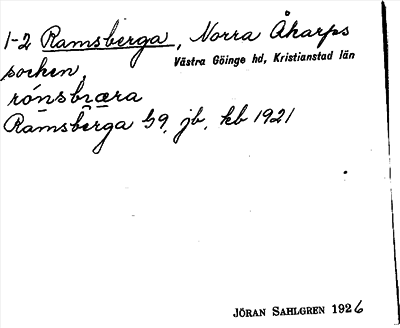 1-2 Ramsberga, Norra Åkarps
socken, Västra Göinge hd, Kristianstad län
Ramsberga by, jb, kb 1921
JÖRAN SAHLGREN 1926